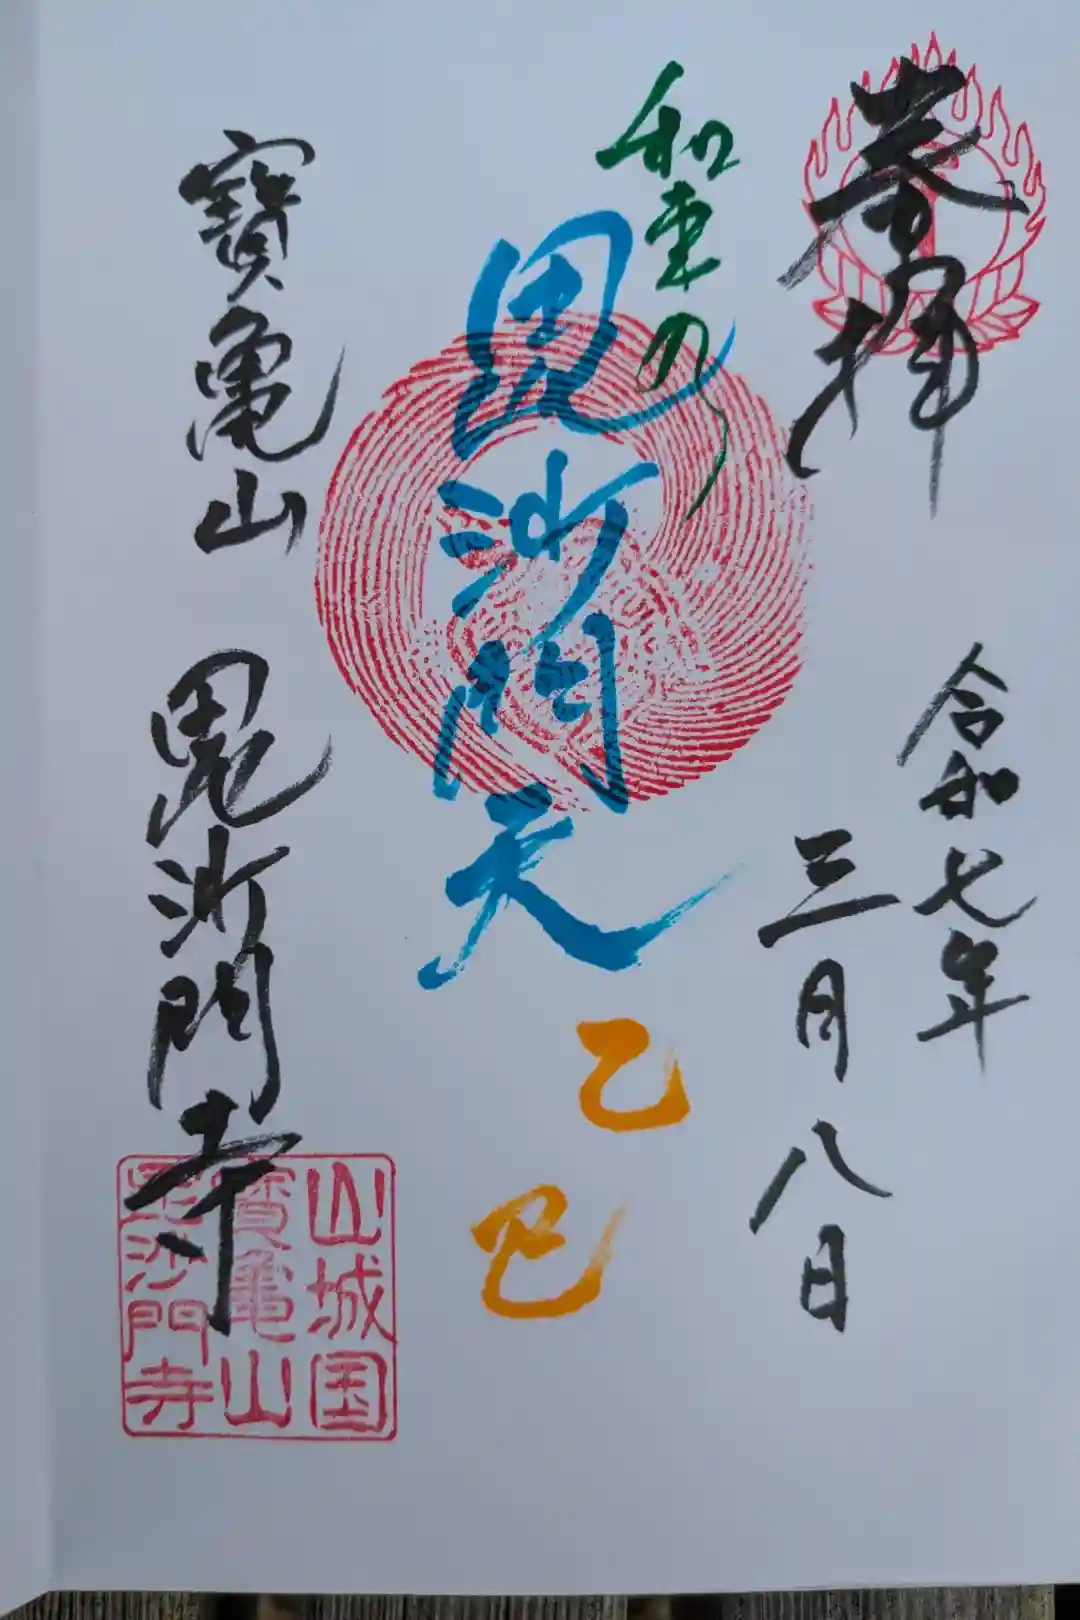 奉拝
令和七年
三月八日
和束の
毘沙門天
乙巳
寶亀山 毘沙門寺
山城国
寶亀山
毘沙門寺